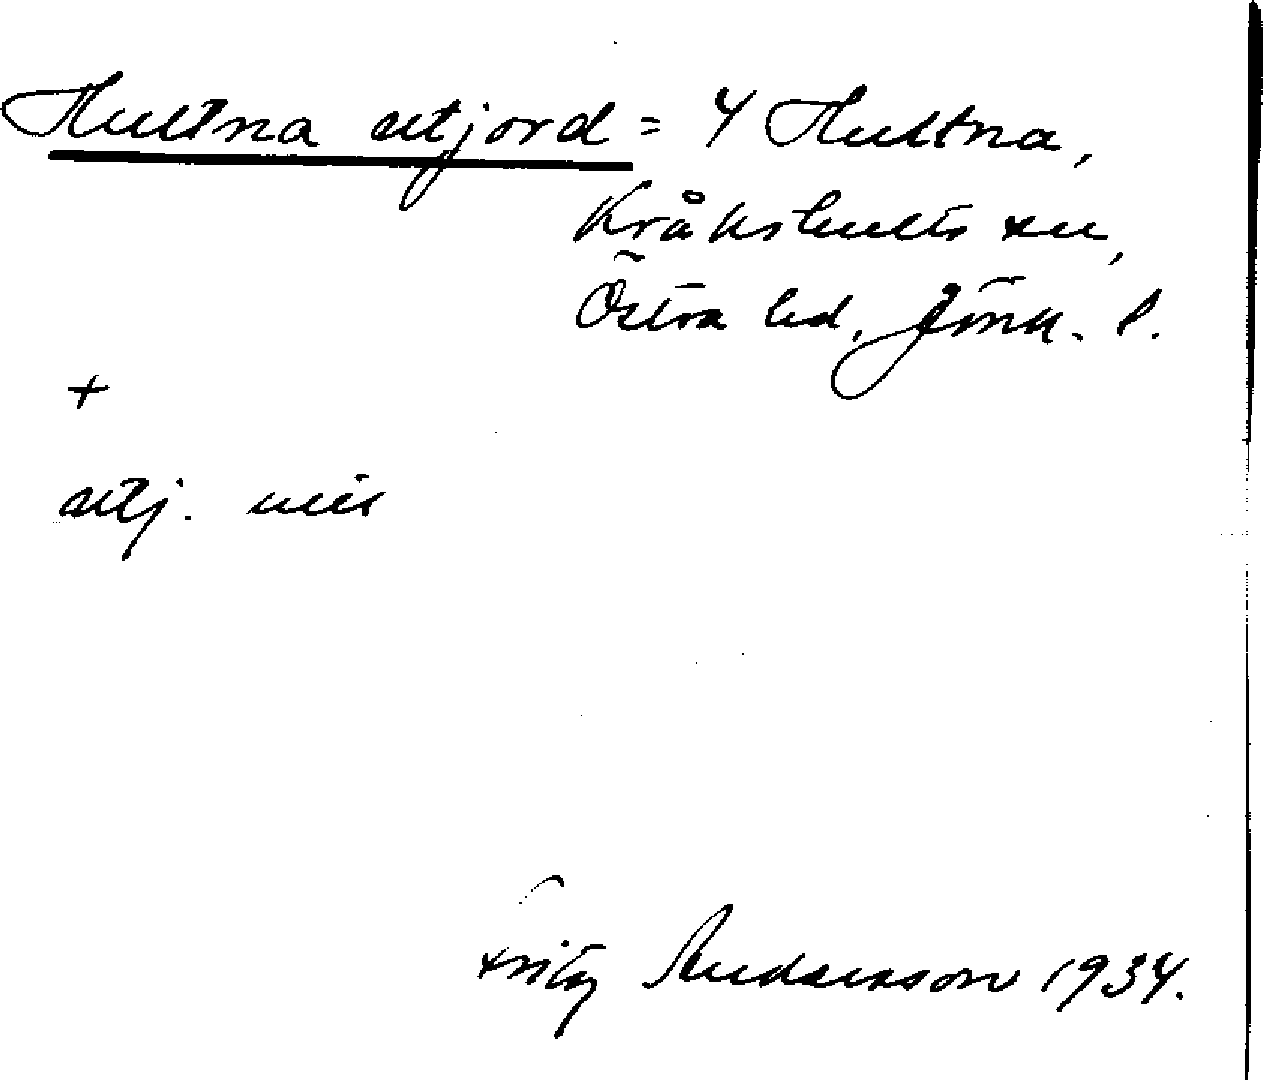 Hultna utjord = 4 Hultna,
Kråkshults sn,
Östra hd, Jönk. l.
+
utj.
Fritz Andersson 1934.